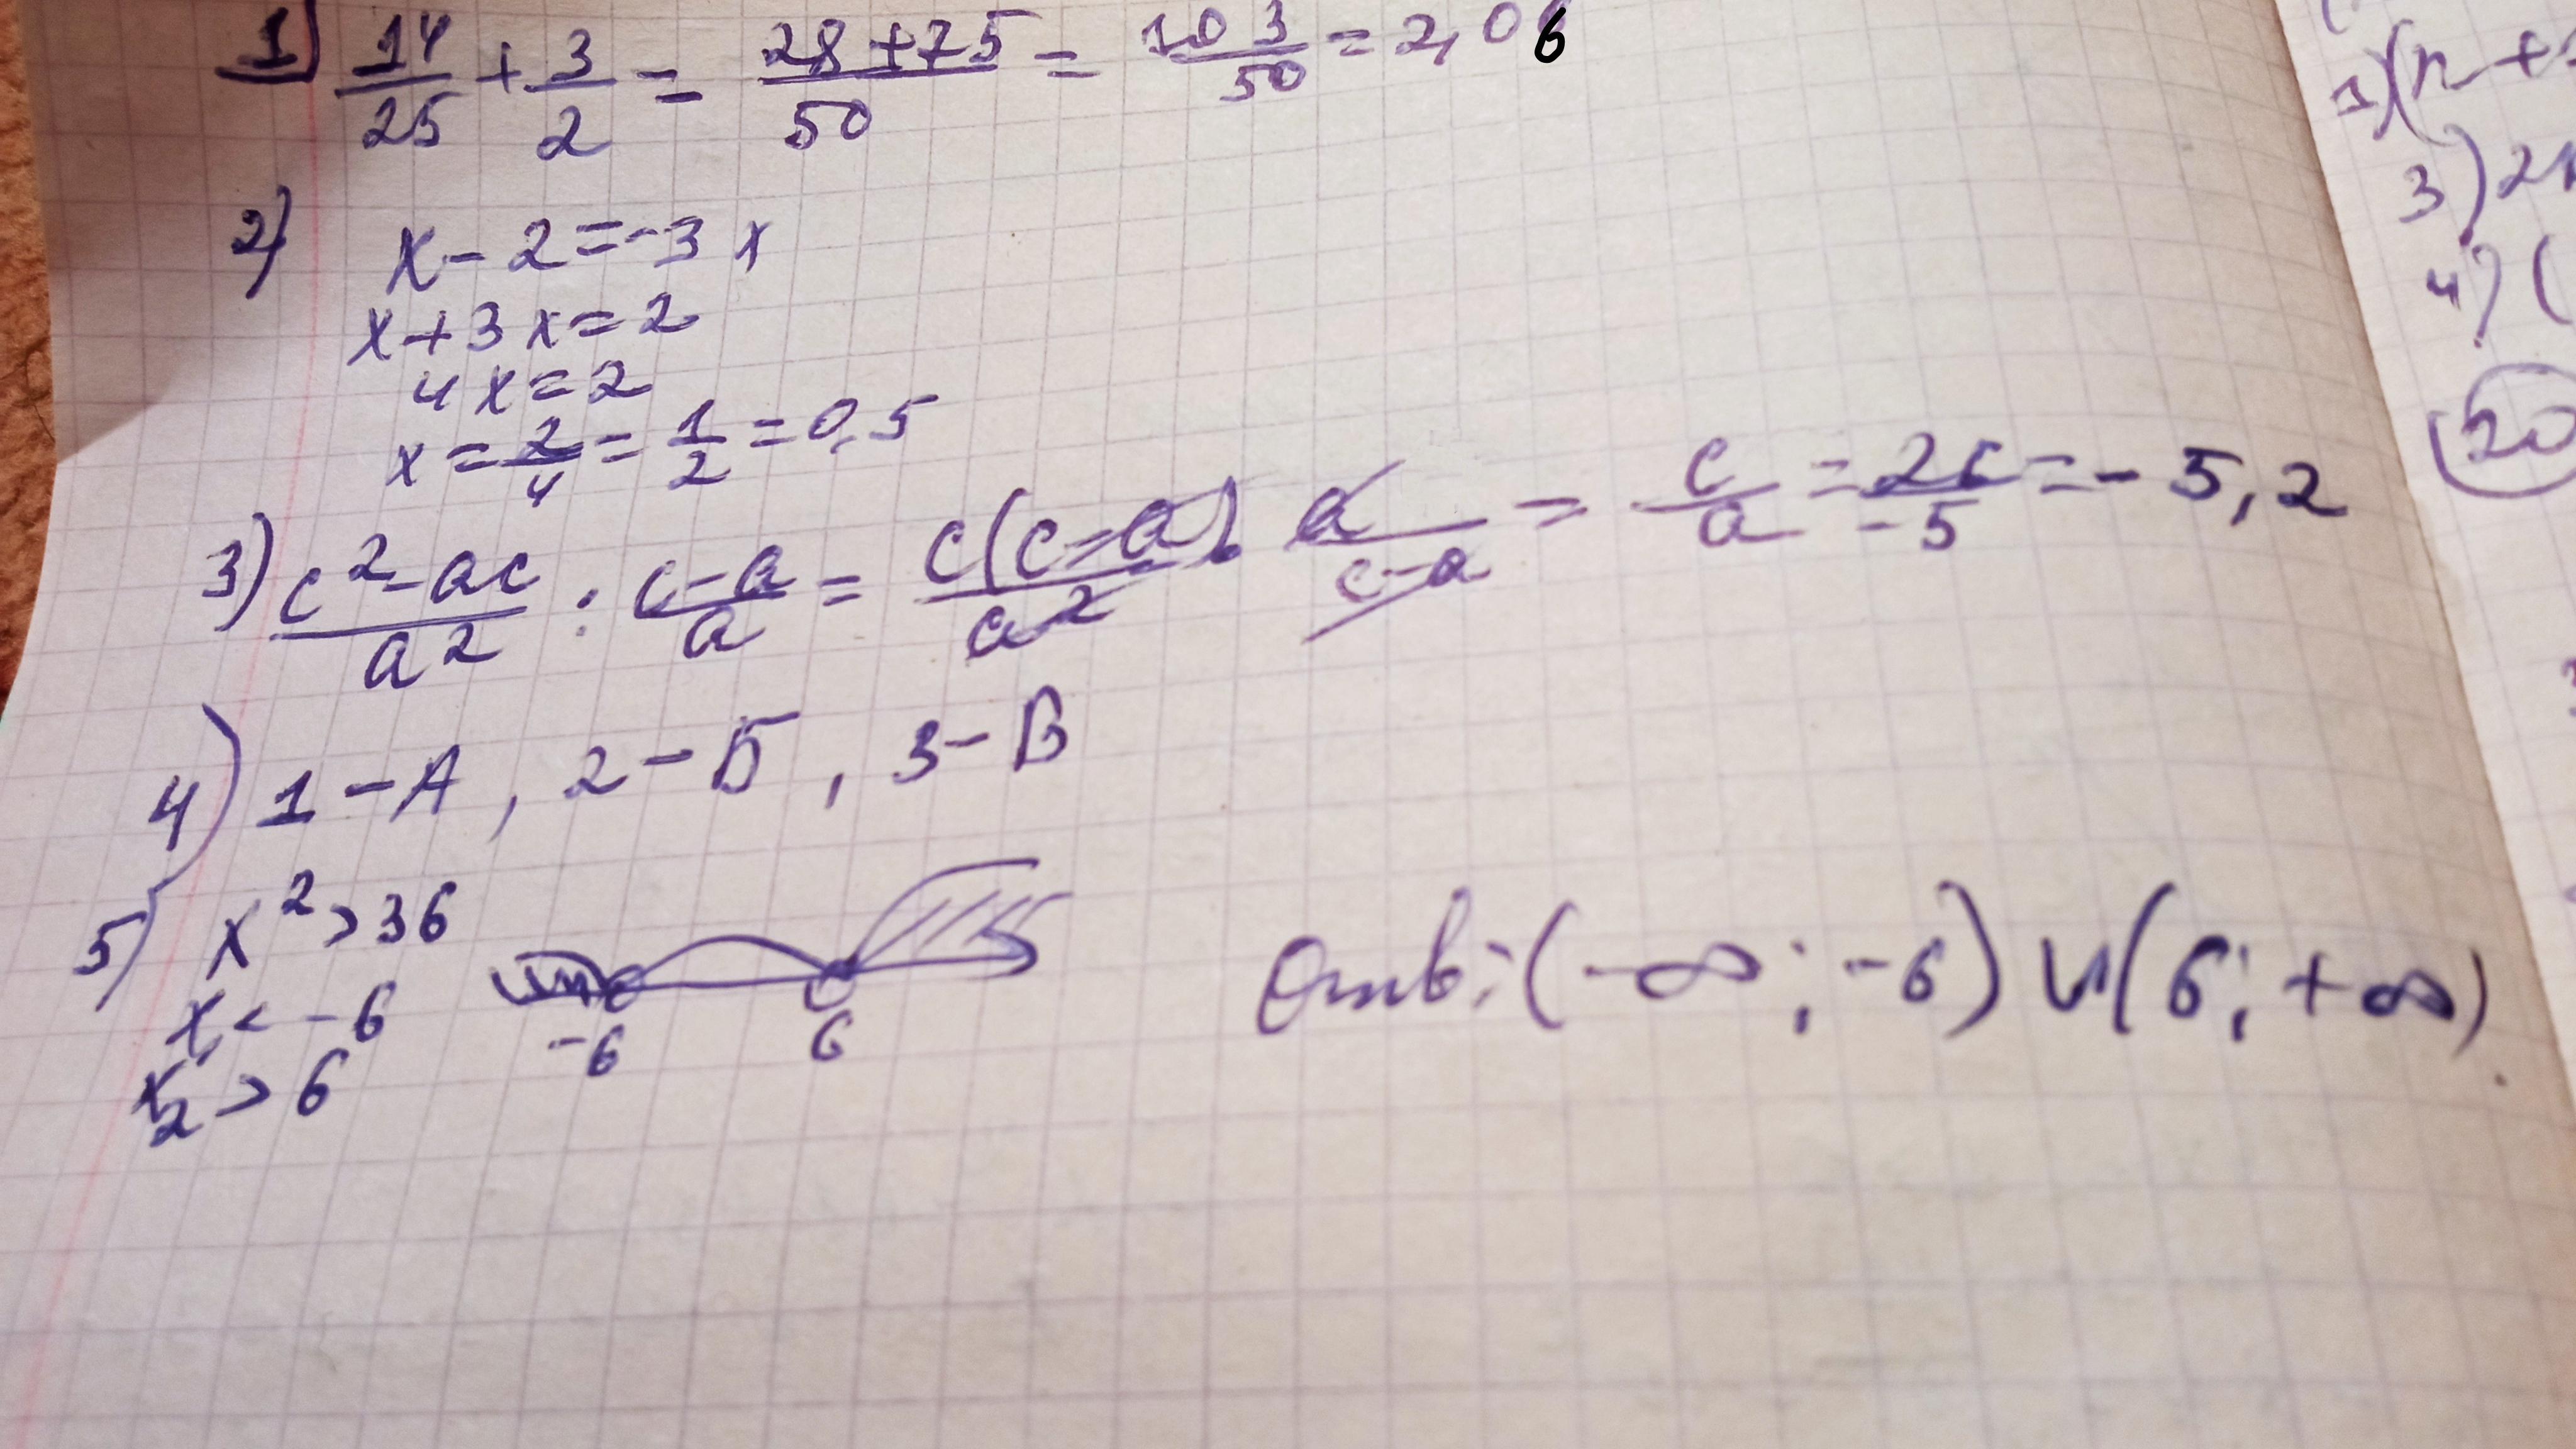 1) 14/25 + 3/2 = 28+75/50 = 103/50 = 2,06
2) x - 2 = -3x
x + 3x = 2
4x = 2
x = 2/4 = 1/2 = 0,5
3) c² - ac / a² : c - a / a = c(c - a) / a² · a / c - a = c/a = 26/-5 = - 5,2
4) 1 - А, 2 - Б, 3 - В
5) x² > 36
x < - 6
x₂ > 6
-6 6
Ответ: (-∞; -6) ∪ (6; +∞)
1) (n +
3) 2
4) (
20